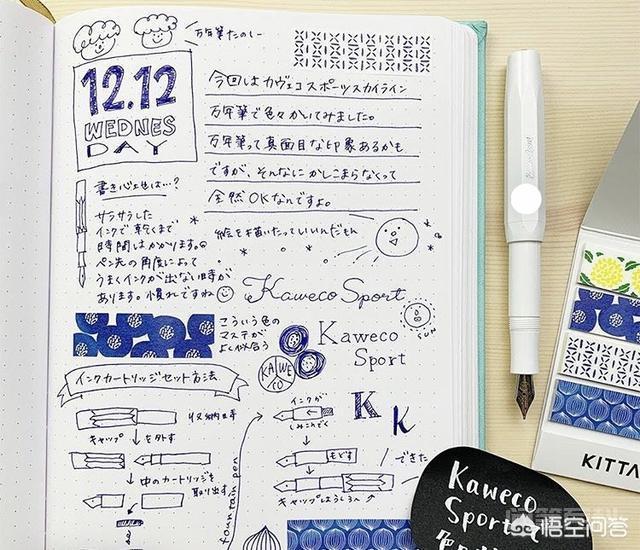 万年筆たのしー
12.12
WEDNES
DAY
今回はカヴェコスポーツスカイライン
万年筆で色々かいてみました。
万年筆って真面目な印象あるかも
ですが、そんなにかしこまらなくって
全然OKなんですよ。
絵を描いたっていいんだもん
書き心地は…?
サラサラした
インクで乾くまで
時間はかかります。
ペン先の角度によって
うまくインクが出ない時が
あります。慣れですね
Kaweco Sport
SUN
こういう色の
マステが
よく似合う
Kaweco
Sport
KA
WE
CO
インクカートリッジセット方法
収納時
キャップを外す
中のカートリッジを
取り出す
fountain pen
インクが
しみこんでく
K
K
もどす
できた
キャップはうしろへ
KITTA
Kaweco
Sport
悟空问答